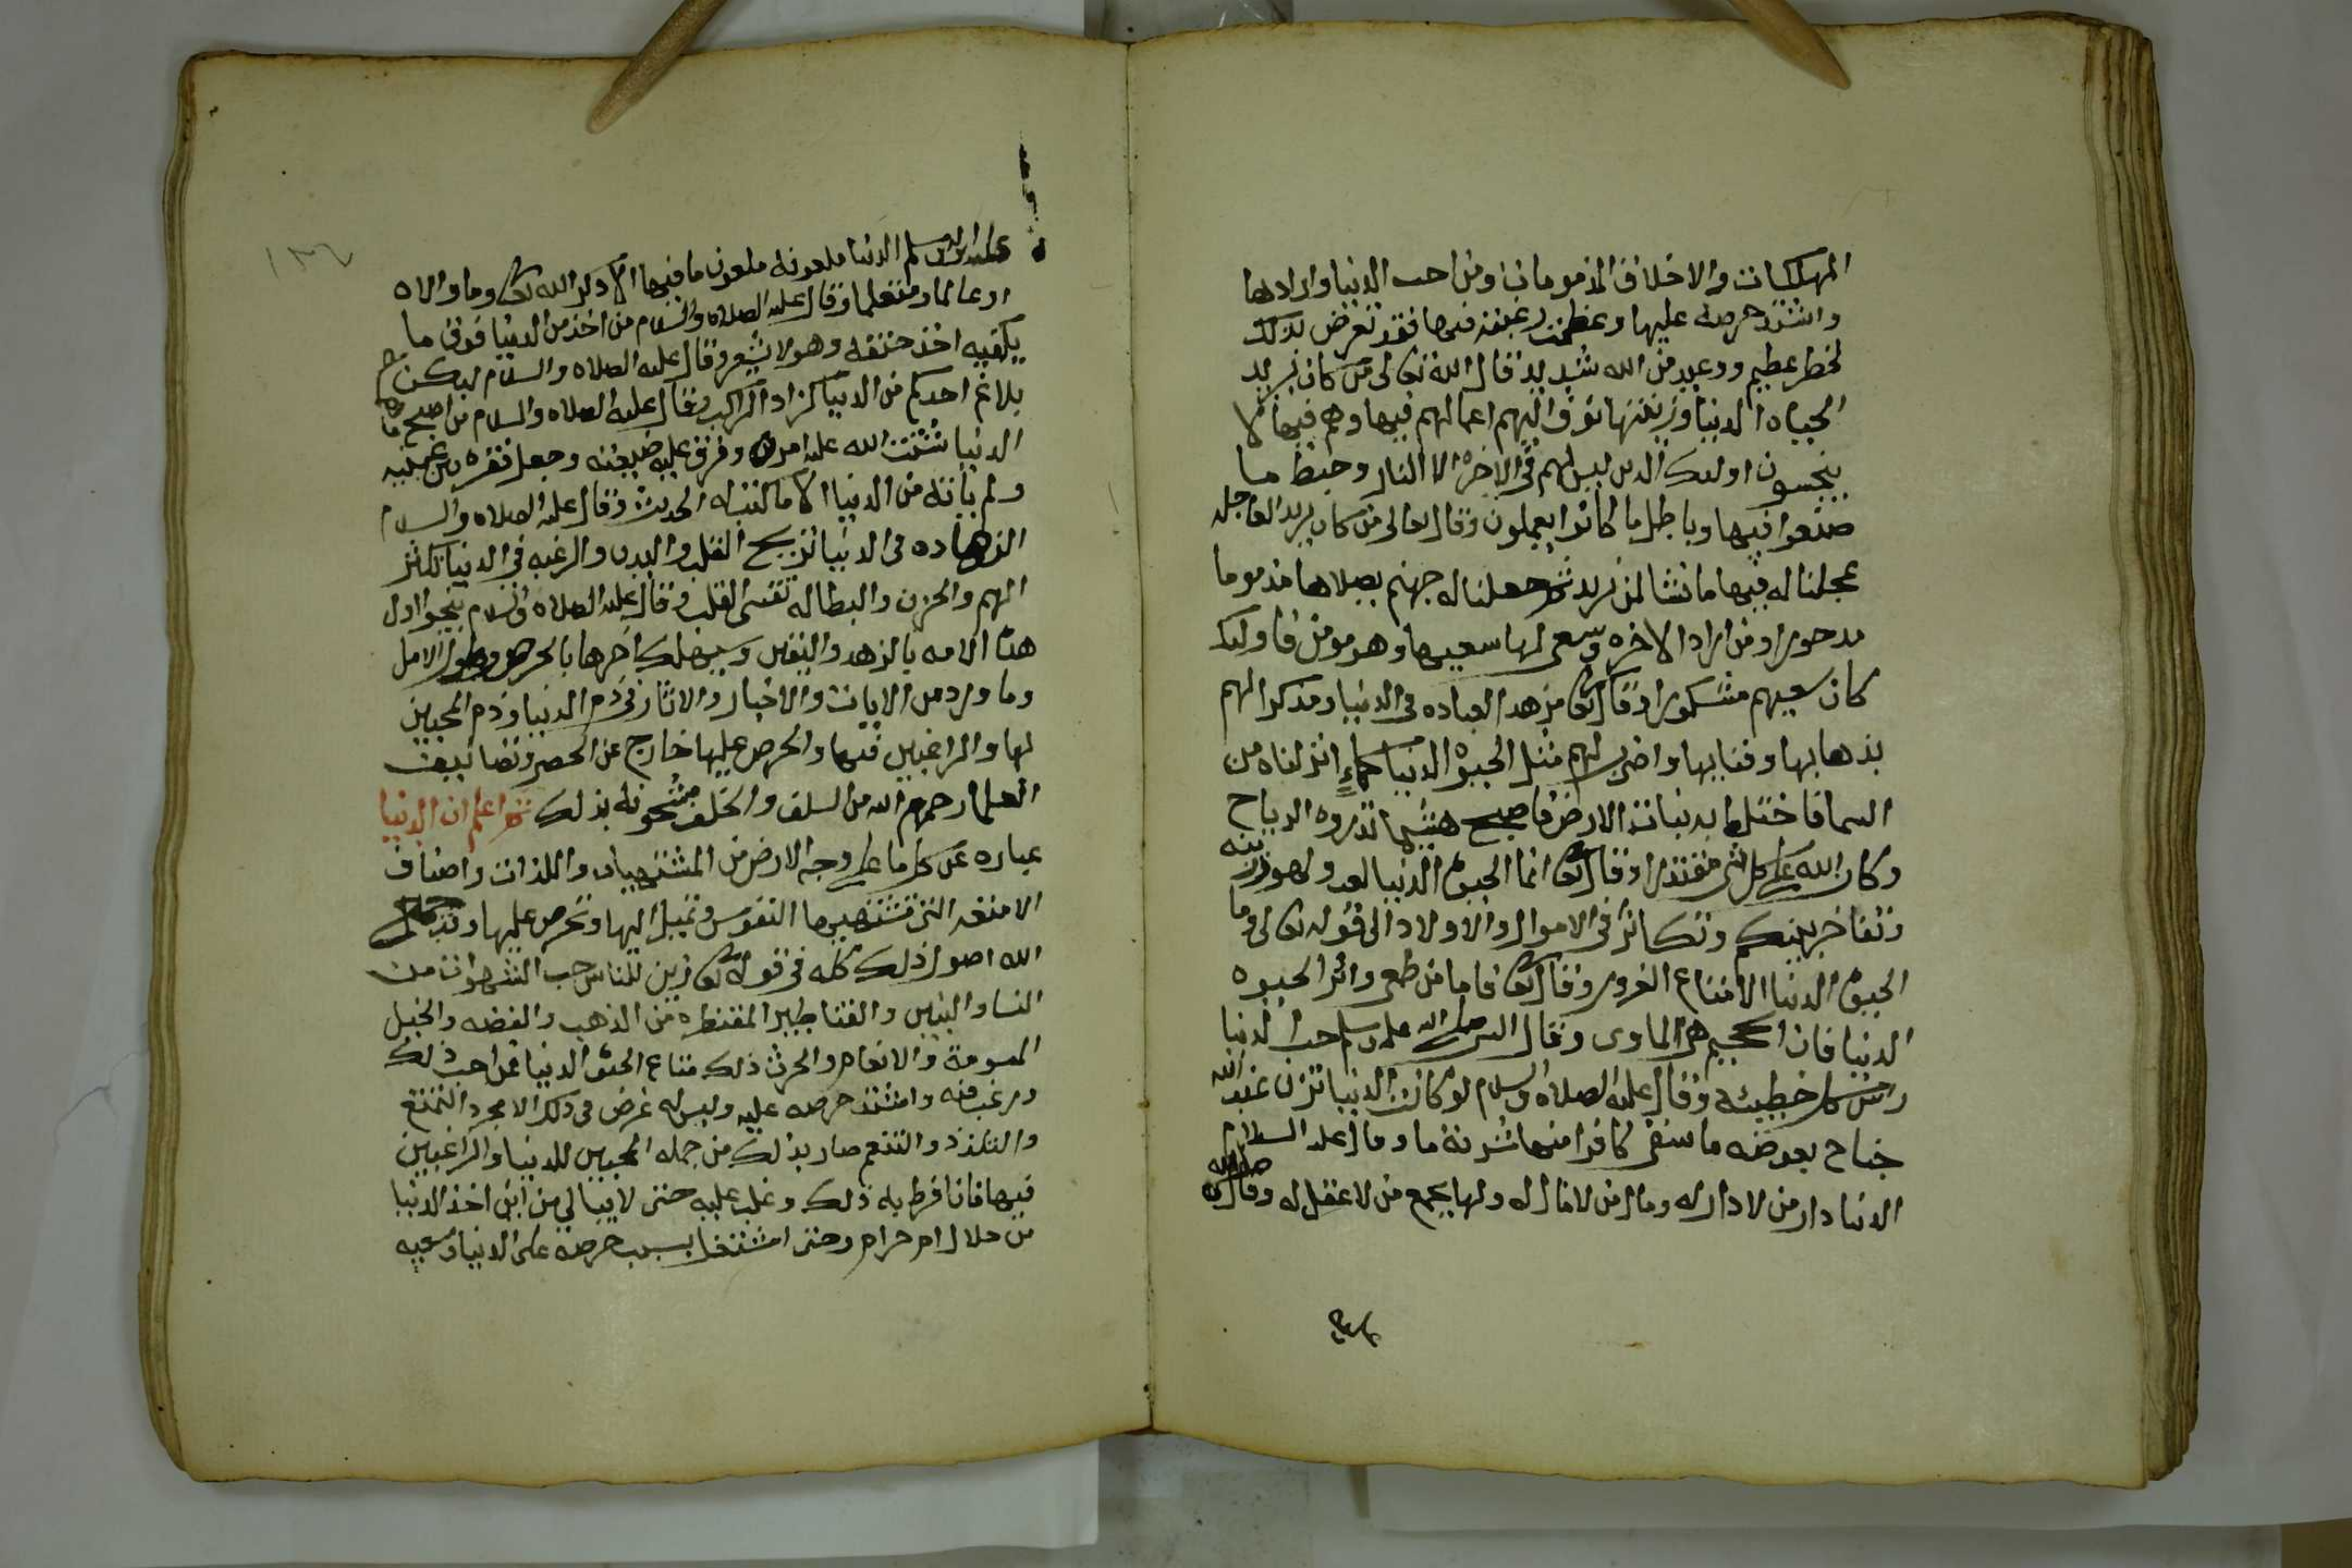 المهلكات والاخلاق المذمومات ومن احب الدنيا وارادها
واشتد حرصه عليها وعظمت رغبته فيها فقد تعرض بذلك
لخطر عظيم ووعيد من الله شديد قال الله تعالى من كان يريد
الحياه الدنيا وزينتها نوف اليهم اعمالهم فيها وهم فيها لا
يبخسون اولئك الذين ليس لهم في الاخره الا النار وحبط ما
صنعوا فيها وباطل ما كانوا يعملون وقال تعالى من كان يريد العاجله
عجلنا له فيها ما نشا لمن نريد ثم جعلنا له جهنم يصلاها مذموما
مدحورا ومن اراد الاخره وسعى لها سعيها وهو مومن فاوليك
كان سعيهم مشكورا وقال تعا مزهدا لعباده في الدنيا ومذكرا لهم
بذهابها وفنايها واضرب لهم مثل الحيوة الدنيا كماء انزلناه من
السما فاختلط به نبات الارض فاصبح هشيما تذروه الرياح
وكان الله على كل شي مقتدرا وقال تعا انما الحيوة الدنيا لعب ولهو وزينه
وتفاخر بينكم وتكاثر في الاموال والاولاد الى قوله تعالى وما
الحيوة الدنيا الا متاع الغرور وقال تعا فاما من طغى واثر الحيوه
الدنيا فان الجحيم هي الماوى وقال النبي صلى الله عليه وسلم حب الدنيا
راس كل خطيئه وقال عليه الصلاه والسلام لو كانت الدنيا تزن عند الله
جناح بعوضه ما سقى كافرا منها شربة ما وقال عليه السلام
الدنيا دار من لا دار له ومال من لا مال له ولها يجمع من لا عقل له وقال صلى الله
عليه
١٣٦
عليه وسلم الدنيا ملعونه ملعون ما فيها الا ذكر الله تعا وما والاه
او عالما او متعلما وقال عليه الصلاه والسلام من اخذ من الدنيا فوق ما
يكفيه اخذ حتفه وهو لا يشعر وقال عليه الصلاه والسلام ليكن
بلاغ احدكم من الدنيا كزاد الراكب وقال عليه الصلاه والسلام من اصبح وهمه
الدنيا شتت الله عليه امره وفرق عليه ضيعته وجعل فقره بين عينيه
ولم ياته من الدنيا الا ما كتب له الحديث وقال عليه الصلاه والسلام
الزهاده في الدنيا تريح القلب والبدن والرغبه في الدنيا تكثر
الهم والحزن والبطاله تقسي القلب وقال عليه الصلاه والسلام ينجوا اول
هذه الامه بالزهد واليقين وسيهلك اخرها بالحرص وطول الامل
وما ورد من الايات والاخبار والاثار في ذم الدنيا وذم المحبين
لها والراغبين فيها والحرص عليها خارج عن الحصر وتصانيف
العلما رحمهم الله من السلف والخلف مشحونه بذلك ثم اعلم ان الدنيا
عباره عن كل ما على وجه الارض من المشتهيات واللذات واصناف
الامتعه التي تشتهيها النفوس وتميل اليها وتحرص عليها وقد جمع
الله اصول ذلك كله في قوله تعا زين للناس حب الشهوات من
النسا والبنين والقناطير المقنطره من الذهب والفضه والخيل
المسومة والانعام والحرث ذلك متاع الحيوة الدنيا فمن احب ذلك
ورغب فيه واشتد حرصه عليه وليس له غرض في ذلك الا مجرد التمتع
والتلذذ والتنعم صار بذلك من جمله المحبين للدنيا والراغبين
فيها فان افرط به ذلك وغلب عليه حتى لا يبالي من اين اخذ الدنيا
من حلال ام حرام وحتى اشتغل بسبب حرصه على الدنيا وسعيه